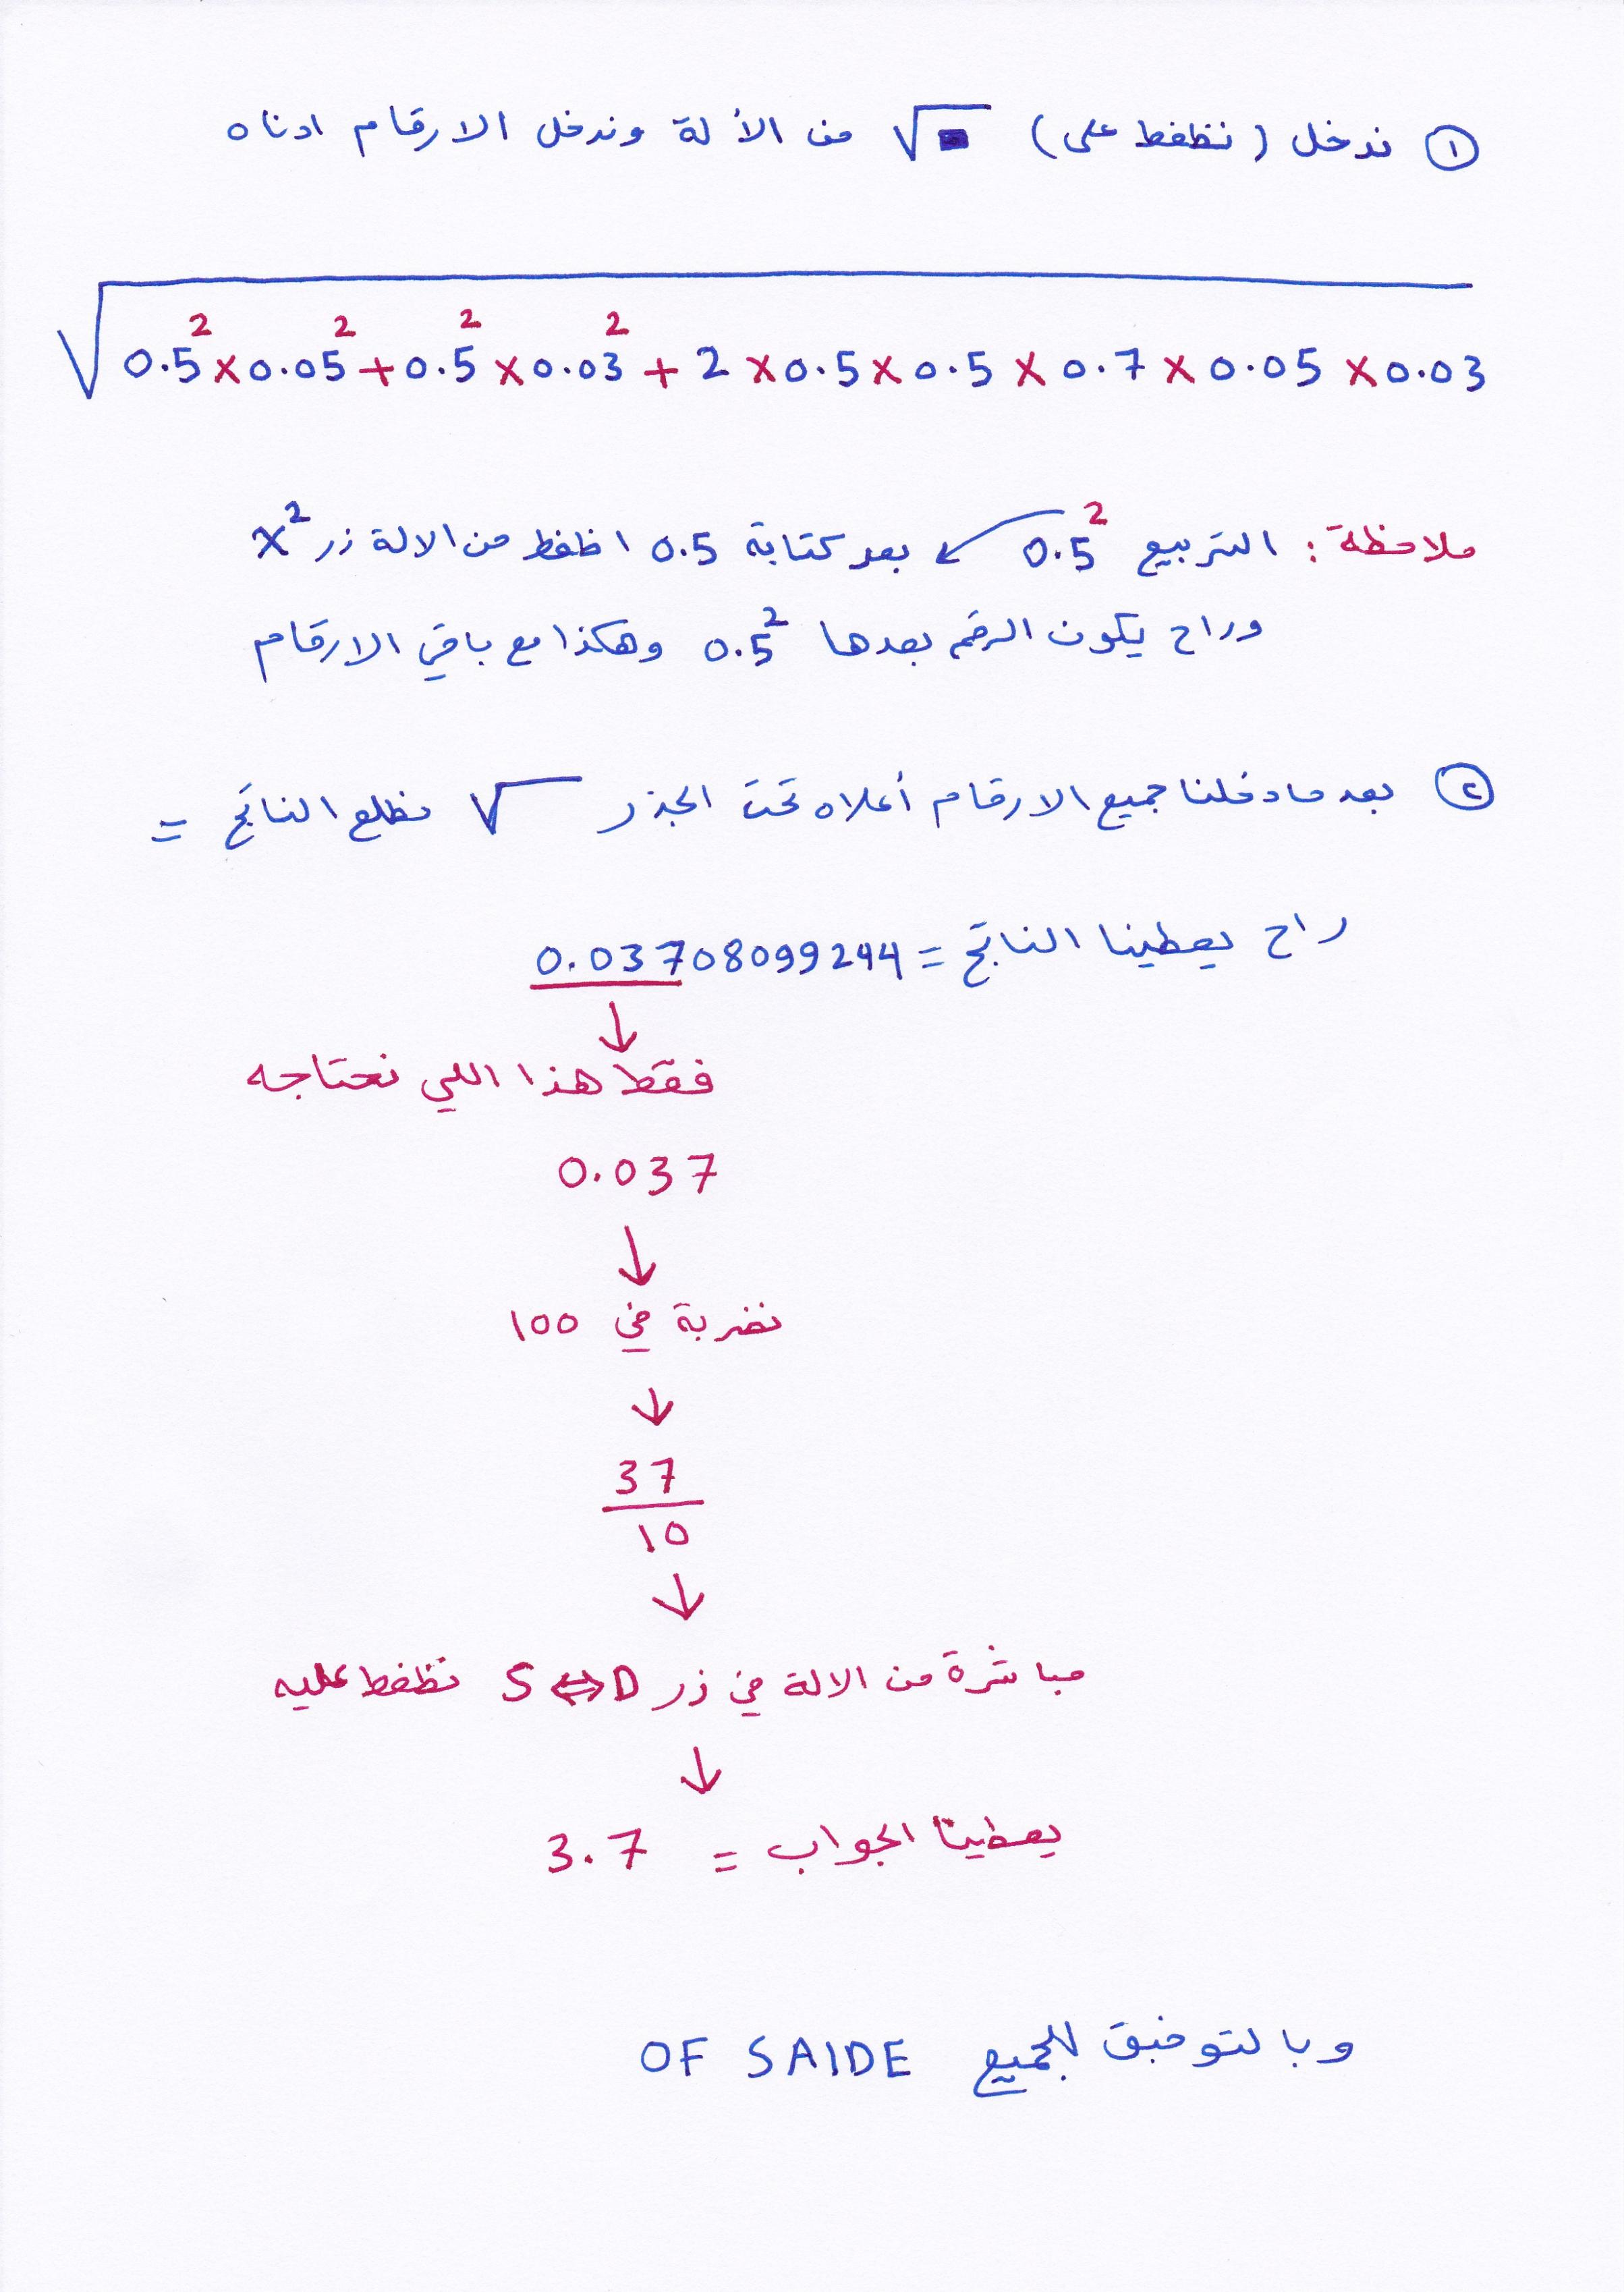 ① ندخل (نظغط على) √■ من الألة وندخل الارقام ادناه
√0.5² × 0.05² + 0.5² × 0.03² + 2 × 0.5 × 0.5 × 0.7 × 0.05 × 0.03
ملاحظة : التربيع 0.5² ↙ بعد كتابة 0.5 اظغط من الالة زر x²
وراح يكون الرقم بعدها 0.5² وهكذا مع باقي الارقام
② بعد مادخلنا جميع الارقام أعلاه تحت الجذر √ نطلع الناتج =
راح يعطينا الناتج = 0.03708099244
↓
فقط هذا اللي نحتاجه
0.037
↓
نضربة في 100
↓
37
10
↓
مباشرة من الالة في زر S⇔D نظغط عليه
↓
يعطينا الجواب = 3.7
وبالتوفيق للجميع OF SAIDE